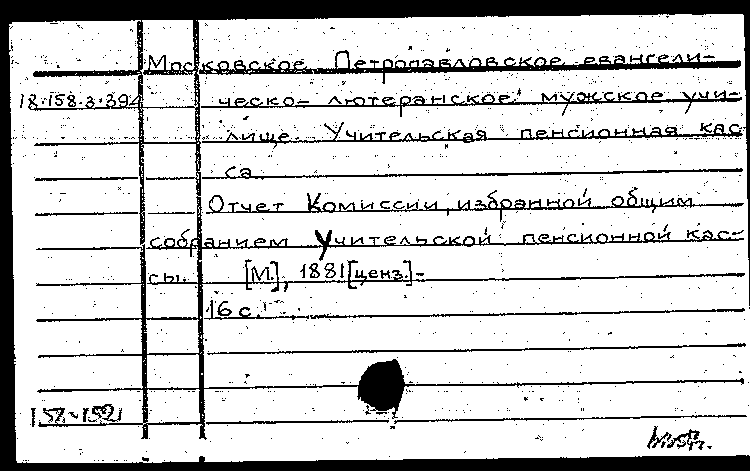 Московское Петропавловское евангели-
18.158.3.394 ческо-лютеранское мужское учи-
лище. Учительская пенсионная кас
са.
Отчет Комиссии, избранной общим
собранием Учительской пенсионной кас-
сы. [М.], 1881 [ценз.]-
16 с.